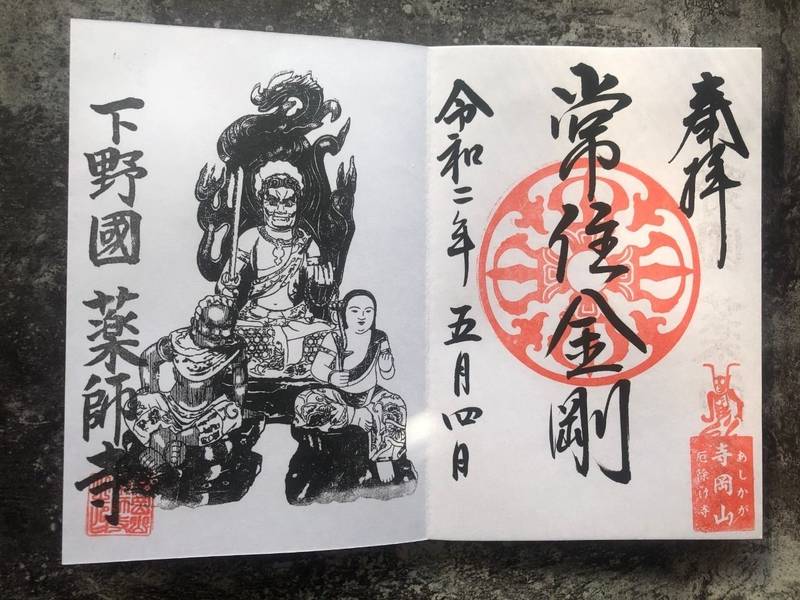 奉拝
常住金剛
令和二年 五月四日
あしかが
寺岡山
厄除け寺
下野國 薬師寺